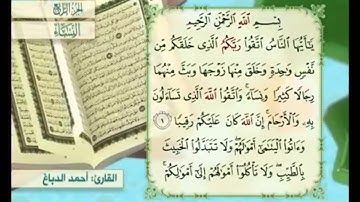 الجزء الرابع
النساء
بِسْمِ اللَّهِ الرَّحْمَٰنِ الرَّحِيمِ
يَٰٓأَيُّهَا ٱلنَّاسُ ٱتَّقُوا۟ رَبَّكُمُ ٱلَّذِى خَلَقَكُم مِّن
نَّفْسٍ وَٰحِدَةٍ وَخَلَقَ مِنْهَا زَوْجَهَا وَبَثَّ مِنْهُمَا
رِجَالًا كَثِيرًا وَنِسَآءً ۚ وَٱتَّقُوا۟ ٱللَّهَ ٱلَّذِى تَسَآءَلُونَ
بِهِۦ وَٱلْأَرْحَامَ ۚ إِنَّ ٱللَّهَ كَانَ عَلَيْكُمْ رَقِيبًا ١
وَءَاتُوا۟ ٱلْيَتَٰمَىٰٓ أَمْوَٰلَهُمْ ۖ وَلَا تَتَبَدَّلُوا۟ ٱلْخَبِيثَ
بِٱلطَّيِّبِ ۖ وَلَا تَأْكُلُوٓا۟ أَمْوَٰلَهُمْ إِلَىٰٓ أَمْوَٰلِكُمْ ۚ
القارئ: أحمد الدباغ